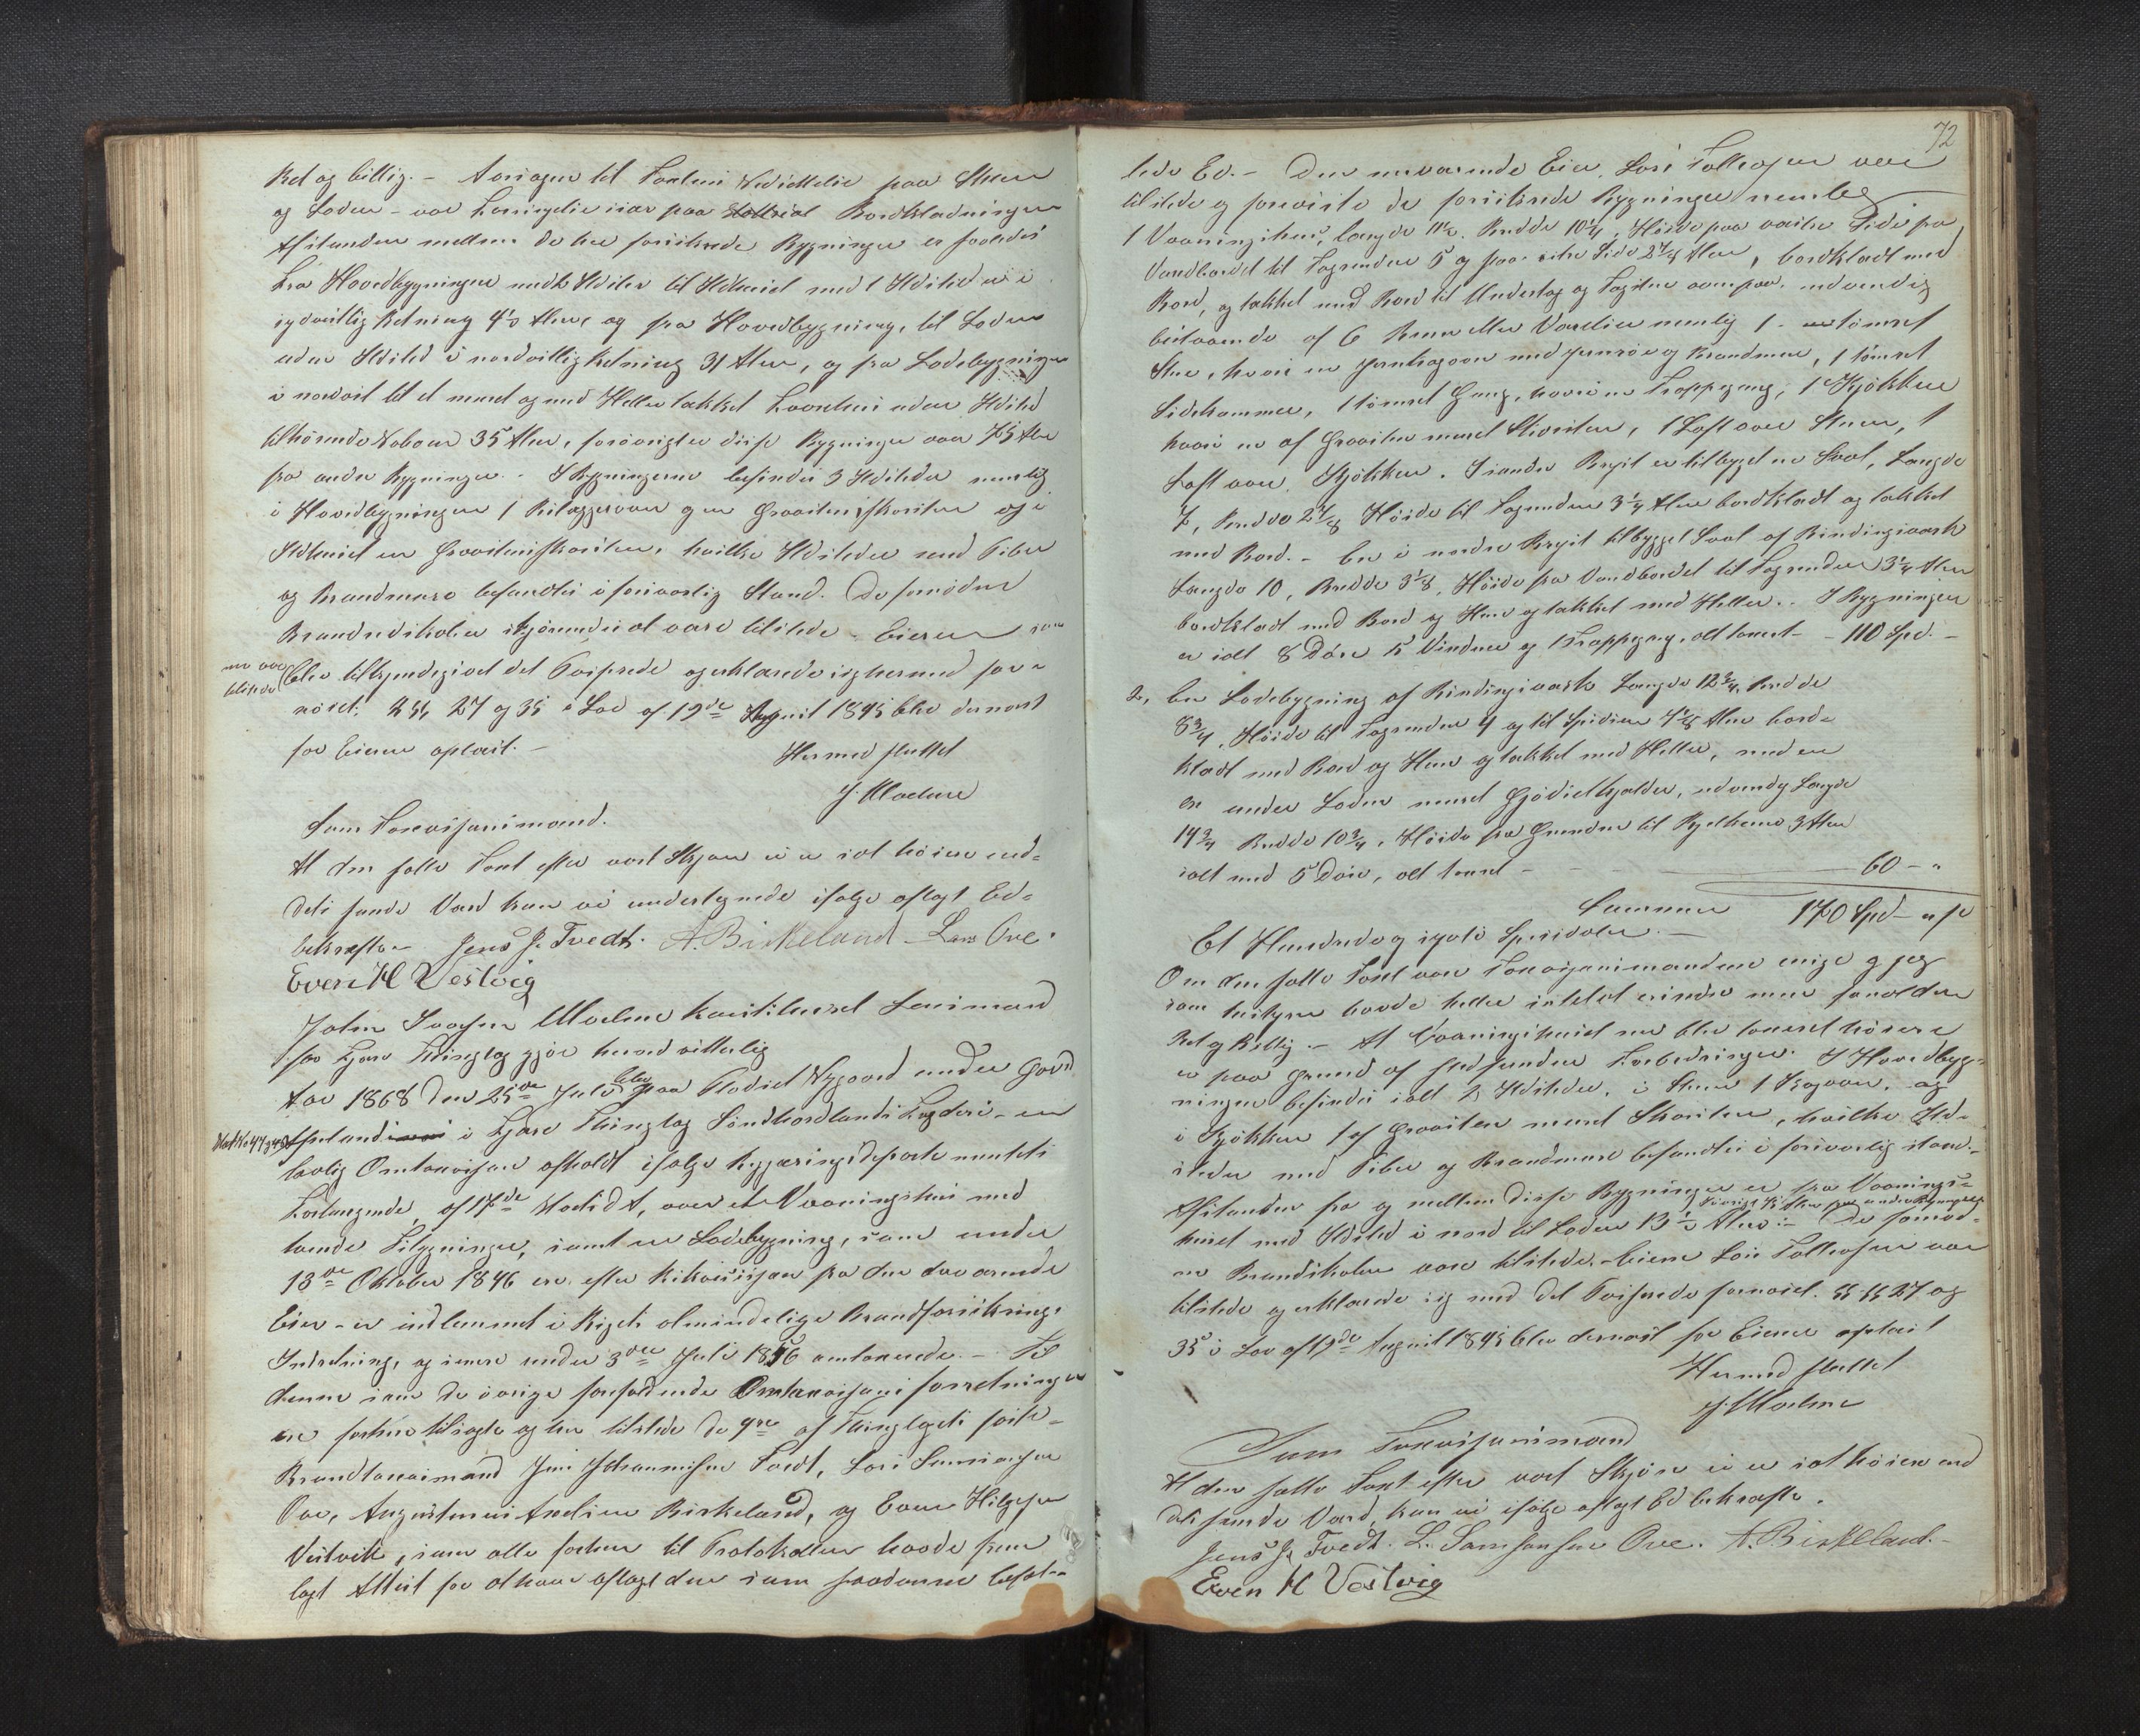 Ret og billig. – Aarsagen til Taxtens Nedsættelse paa Stuen
og Loden – var Forringelse især paa Bordklædningen
Afstanden mellem de her forsikrede Bygninger er saaledes
Fra Hovedbygningen med 2 Ildsteder til Ildhuset med 1 Ildsted er i
sydvestlig Retning 4½ Alen, og fra Hovedbygning, til Loden
uden Ildsted i nordvestlig Retning 31 Alen, og fra Lodebygningen
i nordost til et muret og med Heller takket uden Ildsted
tilhørende Naboen 35 Alen, forøvrigt er disse Bygninger over 75 Alen
fra andre Bygninger. – I Bygningerne befindes 3 Ildsteder nemlig
i Hovedbygningen 1 Bilæggerovn og en Graasteensskorsten og i
Ildhuset en Graasteensskorsten, hvilke Ildsteder med Piber
og Brandmure befandtes i forsvarlig Stand. De fornødne
Brandredskaber skjønnedes at være tilstede – Eieren som
nu var tilstede
blev tilkjendegivet det Passerede og erklærede sig hermed for-
nøiet. §§, 27 og 35 i Lov af 19de August 1845 blev dernæst
for Eieren oplæst. –
Hermed sluttet
J. Moelme
Som Taxationsmænd.
At den satte Taxt efter vort Skjøn ei er sat høiere end-
dets sande Værd kan vi undertegnede ifølge aflagt Ed-
bekræfte – Jens J. Tvedt. A. Birkeland – Lars Ove.
Even H Vestvig
John Moelme konstitueret Lensmand
for Fjære Thinglag gjør herved vitterlig
Aar 1868 den 25de Juli blev paa Pladset Nygaard under Gaard
Matr No 47
i Fjære Thinglag Søndhordlands Fogderi – en
lovlig Omtaxation afholdt ifølge Bygæringsdepartementets
Forlangende af 17de Martz d. A, over et Vaaningshus med
tvende Tilbygninger, samt en Lodebygning, som under
13de Oktober 1846 ere efter Rekvisisjon fra den daværende
Eier – er indlemmet i Rigets almindelige Brandforsikrings
Indretning, og senere under 3die Juli 1856 omtaxerede. – Til
denne som de øvrige forefaldende Omtaxationsforretninger
ere forhen tilsagte og her tilstede de 4re af Thinglagets faste-
Brandtaxtmænd Jens Johannessen Tvedt, Lars Samsonsen
Ove, Augustinus Birkeland, og Even Helgesen
Vestvik, som alle forhen til Protokollen havde frem
lagt Attest for at have aflagt den som saadanne befal-
72
lede Ed. – Den nuværende Eier, Lars Tollefsen var
tilstede og foreviste de forsikrede Bygninger nemlig
1 Vaaningshus, længde 11½. Bredde 10¼, Høide paa østre Side fra
Vandbordet til Tagrenden 5 og paa vestre Side 2⅞ Alen, bordklædt med
Bord, og takket med Bord til Undertag og Tagsten ovenpaa. indvendig
bestaaende af 6 Rum eller Værelser nemlig 1 tømret
Stue, hvori en Jernkagovn med Jernrør og Brandmur, 1 tømret
Sidekammer, 1 tømret Gang, hvori en Trappegang, 1 Kjøkken
hvori en af Graasten muret Skorsten, 1 Loft over Stuen, 1
Loft over Kjøkken. I søndre Bryst er tilbygget en Sval, Længde
7, Bredde 2⅞ Høide til Tagrenden 3¼ Alen bordklædt og takket
med Bord. – En i nordre Bryst tilbygget Sval af Bindingsværk
Længde 10, Bredde 3⅛, Høide fra Vandbordet til Tagrenden 3¼ Alen
bordklædt med Bord og Hun og takket med Heller. – I Bygningen
er ialt 8 Døre 5 Vinduer og 1 Trappegang. alt taxeret – – 110 Spd. –
2, En Lodebygning af Bindingsværk Længde 12¾, Bredde
8¾, Høide til Tagrenden 4 og til Spidsen 7⅛ Alen bord-
klædt med Bord og Hun og takket med Heller, med en
en under Loden muret Gjødselkjælder, udvendig Længde
14¾ Bredde 10¾, Høide fra Grunden til 3 Alen
ialt med 5 Døre, alt taxeret – – – – 60 – "
Summa 170 Spd – " s
Et Hundrede og sytti Spesidaler. –
Om den satte Taxt vare Taxationsmændene enige og jeg
som Bestyrer havde heller intet at erindre men fandt den
Ret og Billig. – At Vaaningshuset nu blev taxeret høiere
er paa Grund af stedfundne Forbedringer. I Hovedbyg-
ningen befindes ialt 2 Ildsteder, i Stuen 1 Kagovn, og
i Kjøkken 1 af Graasten muret Skorsten, hvilke Ild-
steder med Piber og Brandmure befandtes i forsvarlig stand. –
Afstanden fra og mellem disse Bygninger er fra Vaanings-
huset med Ildsted i nord til Loden 13½ Alen – De fornød-
forøvrigt 75 Alen fra andre Bygninger
ne Brandskaber vare tilstede. – Eieren Lars Tollefsen var
tilstede og erklærede sig med det Passerede fornøiet. §§ 27 og
35 i Lov af 19de August 1845 blev dernæst for Eieren oplæst
Hermed sluttet
J. Moelme
Som Taxationsmænd
At den satte Taxt efter vort Skjøn ei er sat høiere end
dets sande Værd, kan vi ifølge aflagt Ed bekræfte.
Jens J. Tvedt. L. Samsonsen Ove. A. Birkeland. –
Even H Vestvig